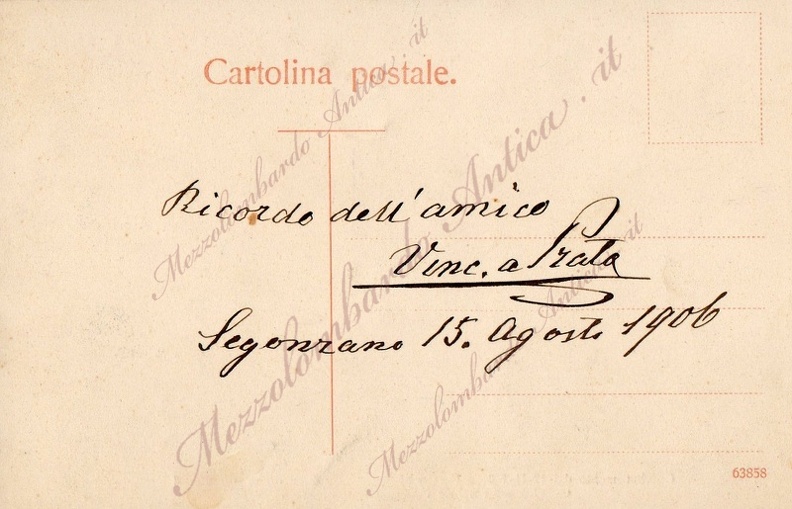 Cartolina postale.
Ricordo dell'amico
Vinc. a Prata
Segonzano 15. Agosto 1906
63858
Mezzolombardo Antica.it
Mezzolombardo Antica.it
Mezzolombardo Antica.it